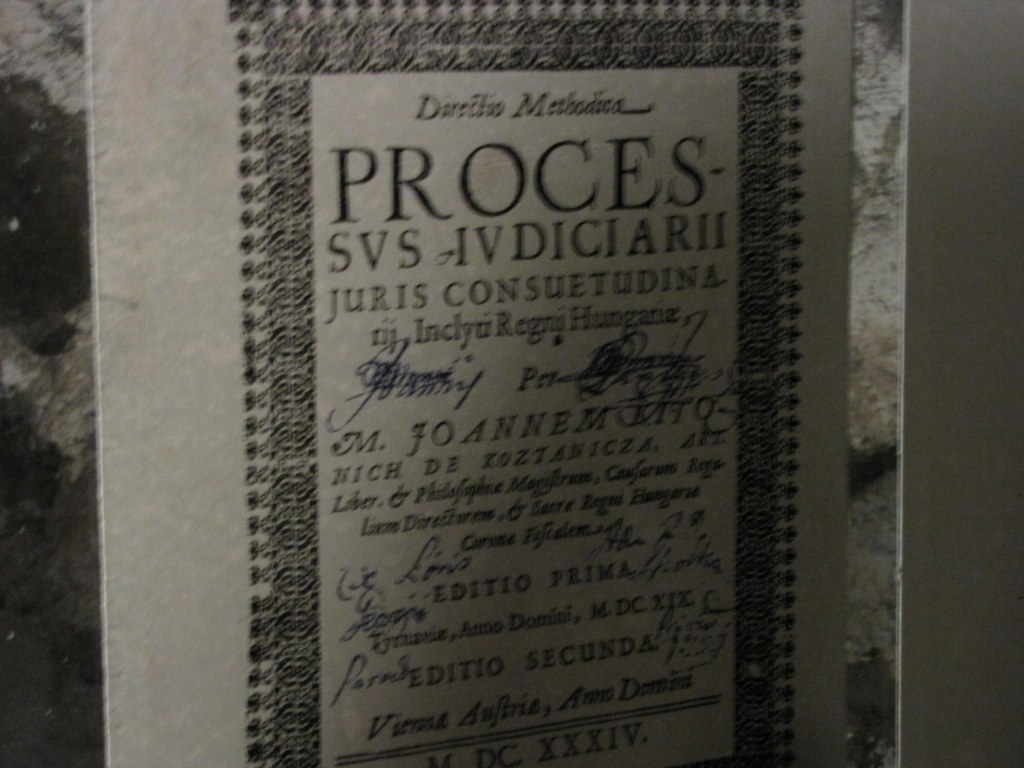 Directio Methodica
PROCES-
SVS IVDICIARII
JURIS CONSUETUDINA
rij, Inclyti Regnij Hungariæ,
Per
M. JOANNEM KITO-
NICH DE KOZTANICZA, ART.
Liber. & Philosophiæ Magistrum, Causarum Rega-
lium Directorem, & Sacræ Regni Hungariæ
Coronæ Fiscalem.
EDITIO PRIMA
Tyrnaviæ, Anno Domini, M. DC XIX
EDITIO SECUNDA
Viennæ Austriæ, Anno Domini
M. DC XXXIV.